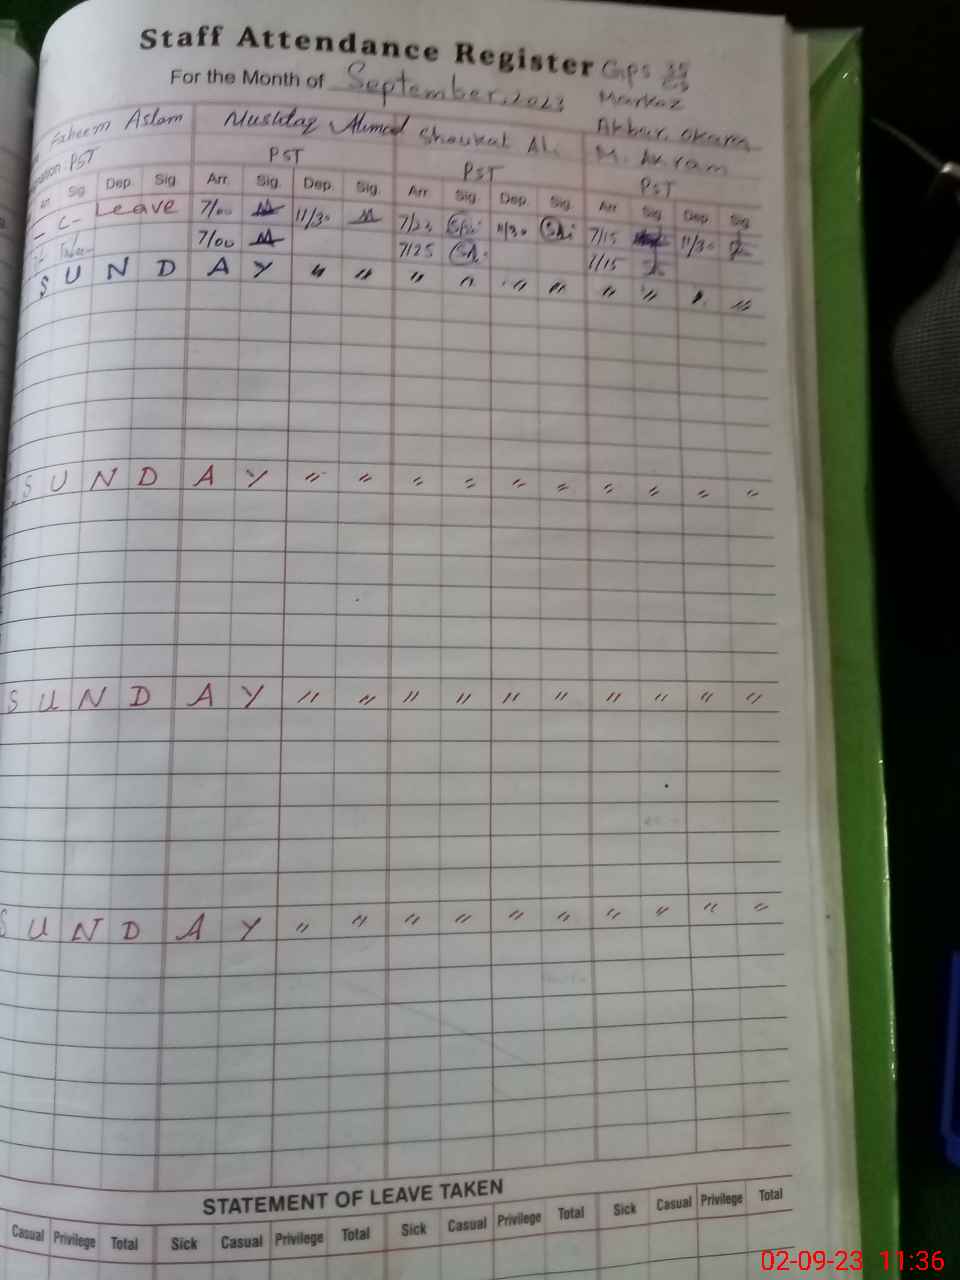 Staff Attendance Register GPS 35
For the Month of September, 2023 Markaz
Faheem Aslam Mushtaq Ahmed Shoukat Ali Akbar. Okara
PST PST PST M. Akram
PST
Sig Dep. Sig Arr. Sig. Dep. Sig. Arr. Sig. Dep. Sig. Arr. Sig. Dep. Sig.
C- Leave 7/00 11/30 7/23 11/30 7/15 11/30
7/00 7/25 7/15
S U N D A Y " " " " " " " " " "
S U N D A Y " " " " " " " " " "
S U N D A Y " " " " " " " " " "
S U N D A Y " " " " " " " " " "
STATEMENT OF LEAVE TAKEN
Casual Privilege Total Sick Casual Privilege Total Sick Casual Privilege Total Sick Casual Privilege Total
02-09-23 11:36